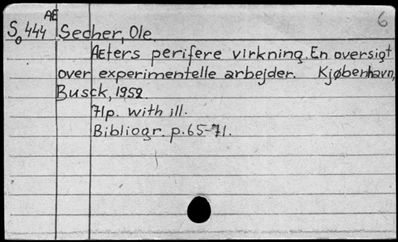 AE 6
So 444 Secher, Ole.
Æters perifere virkning. En oversigt
over experimentelle arbejder. Kjøbenhavn,
Busck, 1952.
71p. with ill.
Bibliogr. p.65-71.